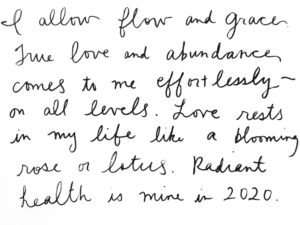 I allow flow and grace.
True love and abundance
comes to me effortlessly~
on all levels. Love rests
in my life like a blooming
rose or lotus. Radiant
health is mine in 2020.